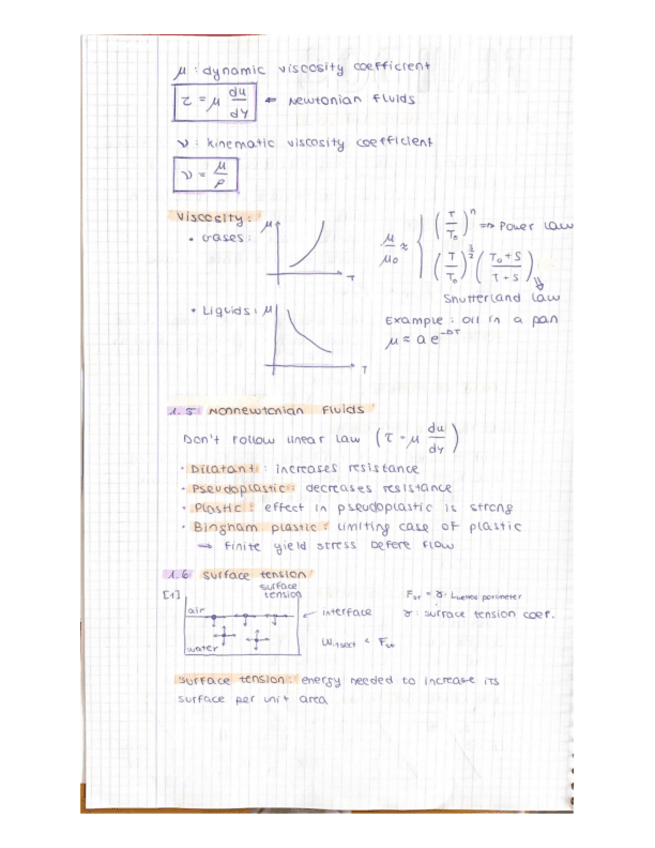 μ : dynamic viscosity coefficient
τ = μ du/dy ← Newtonian Fluids
ν : kinematic viscosity coefficient
ν = μ/ρ
Viscosity:
• Gases: μ T
μ/μ₀ ≈ { (T/T₀)ⁿ ⇒ Power Law
(T/T₀)^(3/2) (T₀+S / T+S)
Shutterland Law
• Liquids: μ T
Example: oil in a pan
μ ≈ a e^(-bT)
1.5 Nonnewtonian Fluids
Don't follow linear law (τ = μ du/dy)
• Dilatant: increases resistance
• Pseudoplastic: decreases resistance
• Plastic: effect in pseudoplastic is strong
• Bingham plastic: limiting case of plastic
→ finite yield stress before flow
1.6 Surface tension
[1] surface tension
air
water
← interface
γ : surface tension coef.
Surface tension: energy needed to increase its
surface per unit area